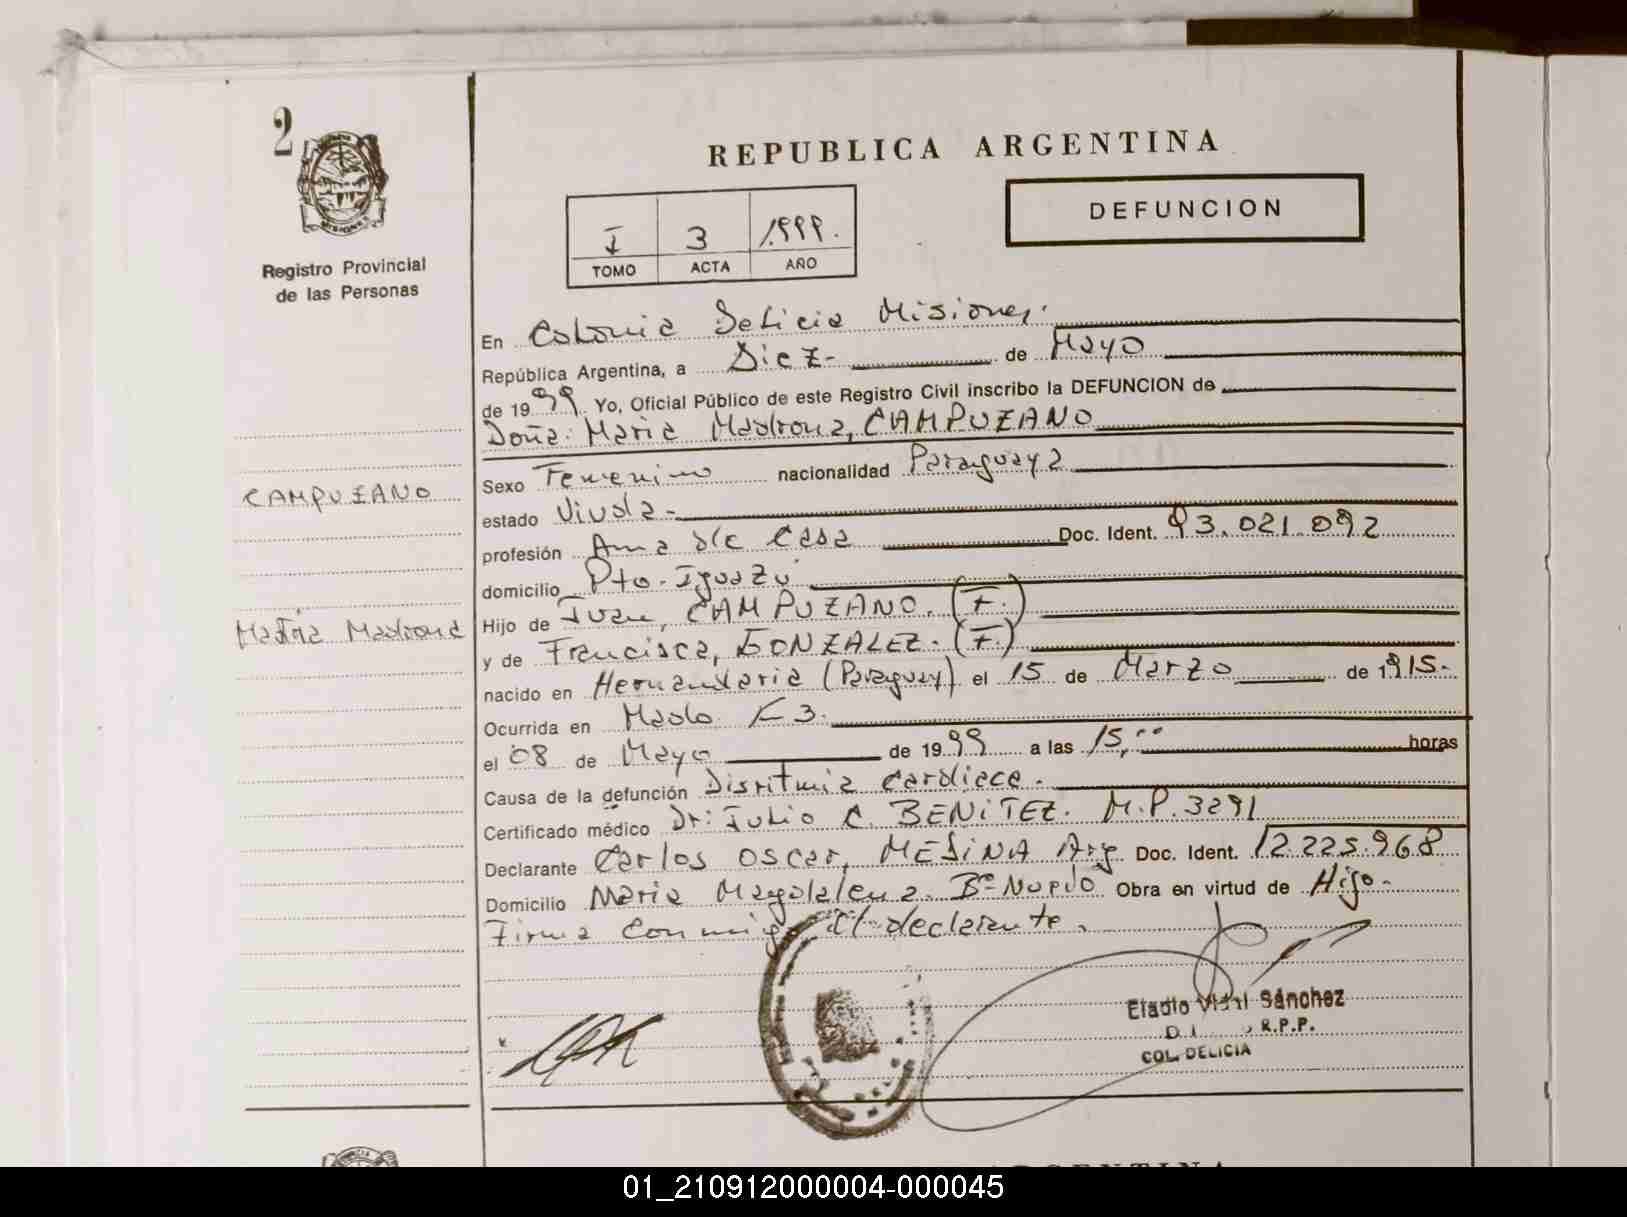 2
REPUBLICA ARGENTINA
DEFUNCION
I 3 1999.
TOMO ACTA AÑO
Registro Provincial
de las Personas
En Colonia Delicia Misiones.
República Argentina, a Diez- de Mayo
de 1999. Yo, Oficial Público de este Registro Civil inscribo la DEFUNCION de
Doña: Maria Madrona, CAMPUZANO
Sexo Femenino nacionalidad Paraguaya
CAMPUZANO
estado Viuda-
profesión Ama de Casa Doc. Ident. 93.021.092
domicilio Pto. Iguazú
Maria Madrona
Hijo de Juan, CAMPUZANO. (F.)
y de Francisca, GONZALEZ. (F.)
nacido en Hernandaria (Paraguay) el 15 de Marzo de 1915.
Ocurrida en Mado K 3.
el 08 de Mayo de 1999 a las 15,00 horas
Causa de la defunción Disritmia Cardiaca.
Certificado médico Dr: Julio C. BENiTEZ. M.P. 3291
Declarante Carlos Oscar, MEDiNA Arg. Doc. Ident. 12.225.968
Domicilio Maria Magdalena. Bº Obra en virtud de Hijo-
Firma Conmigo el declarante.
Eladio Vidal Sánchez
R.P.P.
COL. DELICIA
ARGENTINA
01_210912000004-000045